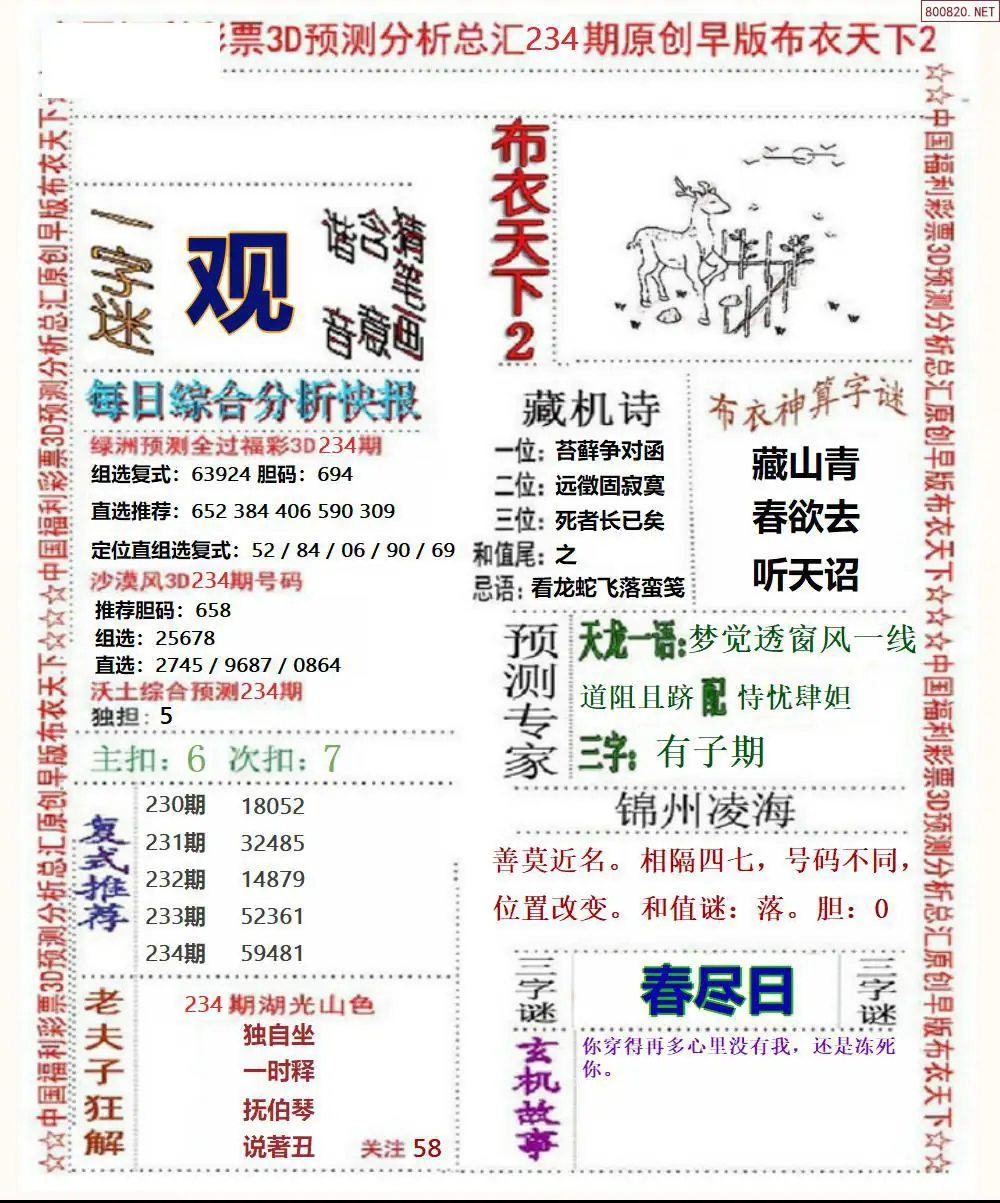 800820.NET
彩票3D预测分析总汇234期原创早版布衣天下2
☆☆中国福利彩票3D预测分析总汇原创早版布衣天下☆☆☆中国福利彩票3D预测分析总汇原创早版布衣天下☆
☆☆中国福利彩票3D预测分析总汇原创早版布衣天下☆☆☆☆中国福利彩票3D预测分析总汇原创早版布衣天下☆☆
布衣天下2
一字迷
观
猜笔画
含意
谐音
每日综合分析快报
绿洲预测全过福彩3D234期
组选复式：63924 胆码：694
直选推荐：652 384 406 590 309
定位直组选复式：52 / 84 / 06 / 90 / 69
沙漠风3D234期号码
推荐胆码：658
组选：25678
直选：2745 / 9687 / 0864
沃土综合预测234期
独担：5
主扣：6 次扣：7
复式推荐
230期 18052
231期 32485
232期 14879
233期 52361
234期 59481
老夫子狂解
234期湖光山色
独自坐
一时释
抚伯琴
说著丑
关注 58
藏机诗
一位：苔藓争对函
二位：远徼固寂寞
三位：死者长已矣
和值尾：之
忌语：看龙蛇飞落蛮笺
布衣神算字谜
藏山青
春欲去
听天诏
预测专家
天龙一语:梦觉透窗风一线
道阻且跻 配 恃忧肆妲
三字: 有子期
锦州凌海
善莫近名。相隔四七，号码不同，
位置改变。和值谜：落。胆：0
三字谜
春尽日
三字谜
玄机故事
你穿得再多心里没有我，还是冻死
你。